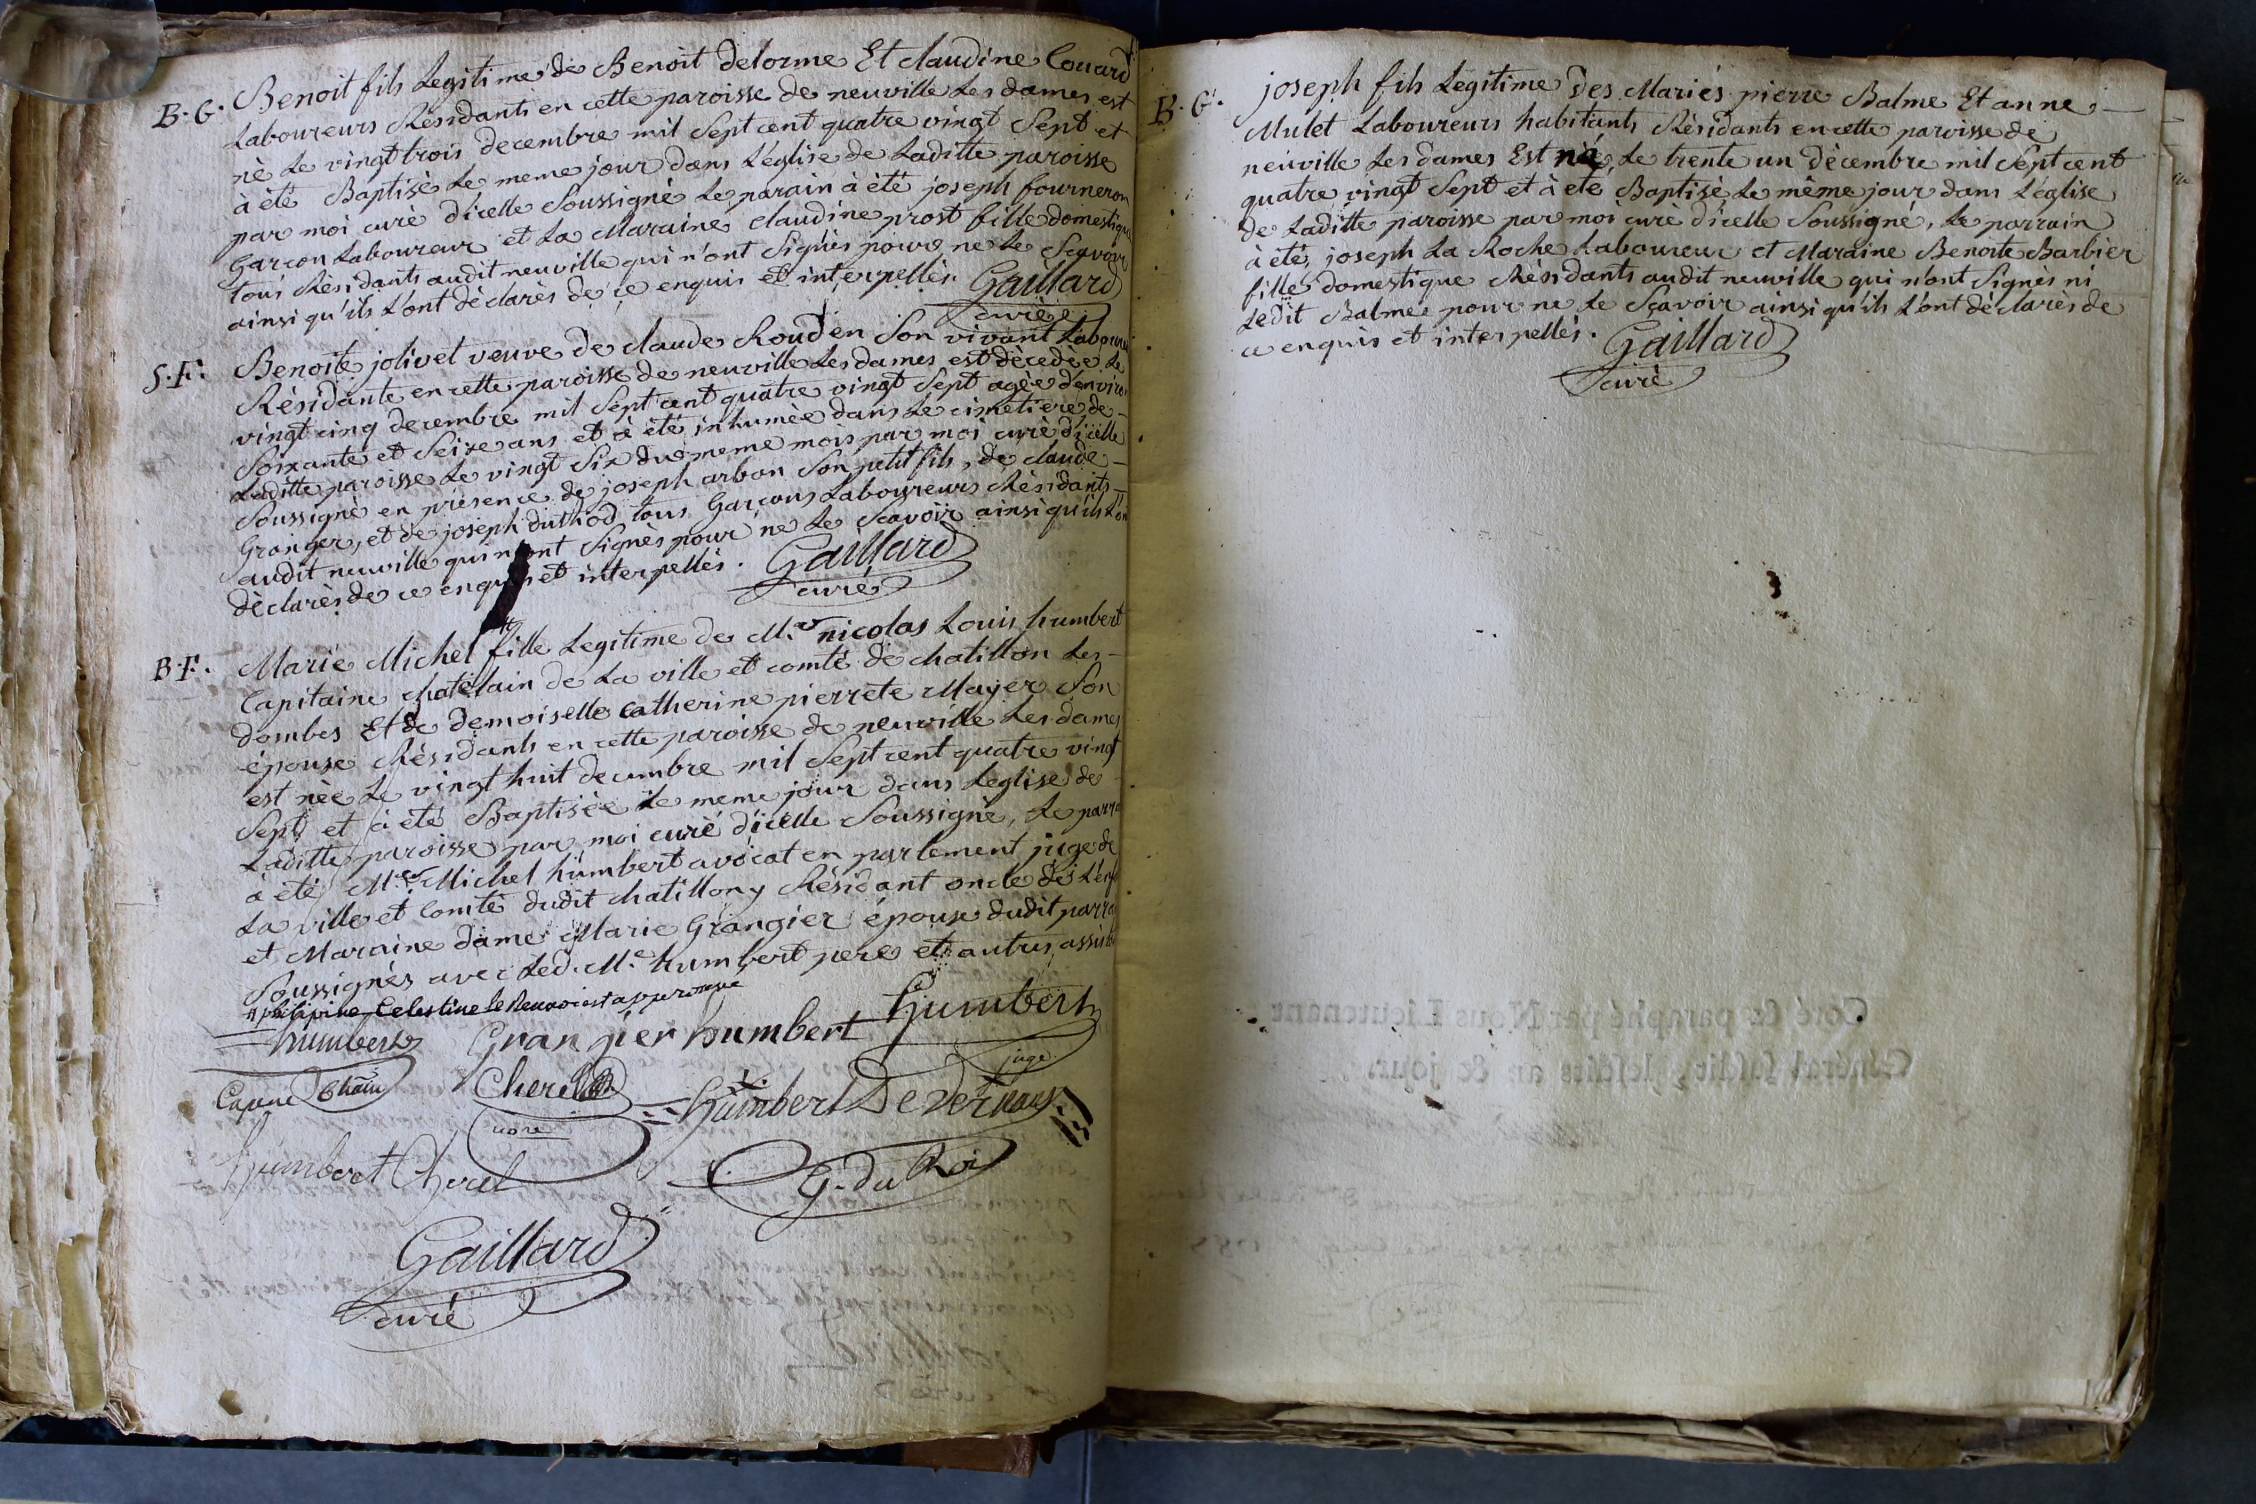 B.G. Benoit fils Legitime de Benoit delorme Et claudine Couard
Laboureurs Rèsidants en cette paroisse de neuville Les dames est
nè Le vingt trois decembre mil Sept cent quatre vingt Sept et
à étè Baptisè Le meme jour dans L'église de Laditte paroisse
par moi curè d'icelle Soussignè Le parain à étè joseph fourneron
Garcon Laboureur et La Maraine claudine prost fille domestique
tous Rèsidants audit neuville qui n'ont Signès pour ne Le Scavoir
ainsi qu'ils L'ont dèclarès de ce enquis et interpellès. Gaillard
curè
S.F. Benoite jolivet veuve de claude Roud en Son vivant Laboureur
Rèsidante en cette paroisse de neuville Les dames est dècedèe Le
vingt cinq decembre mil Sept cent quatre vingt Sept agèe d'environ
Soixante et Seize ans et à étè inhumèe dans Le cimetiere de
Laditte paroisse Le vingt Six du meme mois par moi curè d'icelle
Soussignè en prèsence de joseph arbon Son petit fils, de claude
Granger, et de joseph duthod tous Garcons Laboureurs Rèsidants
audit neuville qui n'ont Signès pour ne Le Scavoir ainsi qu'ils L'on
dèclarès de ce enquis et interpellès. Gaillard
curè
B.F. Marie Michel fille Legitime de M.e nicolas Louis humbert
Capitaine chatelain de La ville et comtè de chatillon Les
dombes Et de demoiselle catherine pierrete Mayer Son
épouse Rèsidants en cette paroisse de neuville Les dames
est nèe Le vingt huit decembre mil Sept cent quatre vingt
Sept et à étè Baptisèe Le meme jour dans L'eglise de
Laditte paroisse par moi curè d'icelle Soussignè, Le parra
à étè M.e Michel humbert avocat en parlement juge de
La ville et Comtè dudit chatillon y Rèsidant oncle de L'enf
et Maraine dame Marie Grangier épouse dudit parra
Soussignès avec Led. M.e humbert pere et autres assist
philipine Celestine le Renvoi est approuvé
humbert Grangier humbert humbert
juge
Cap.ne Chatn Cherel Humbert De Vernaux
Humbert Cherel G. du Roi
Gaillard
curé
B.G. joseph fils Lègitime des Mariès pierre Balme Et anne
Mulet Laboureurs habitants Rèsidants en cette paroisse de
neuville Les dames Est nè Le trente un dècembre mil Sept cent
quatre vingt Sept et à etè Baptisè Le même jour dans L'èglise
de Laditte paroisse par moi curè d'icelle Soussignè, Le parrain
à étè joseph La Roche Laboureur et Maraine Benoite Barbier
fille domestique Rèsidants audit neuville qui n'ont Signès ni
Ledit Balme pour ne Le Sçavoir ainsi qu'ils L'ont dèclarès de
ce enquis et interpellès. Gaillard
curè